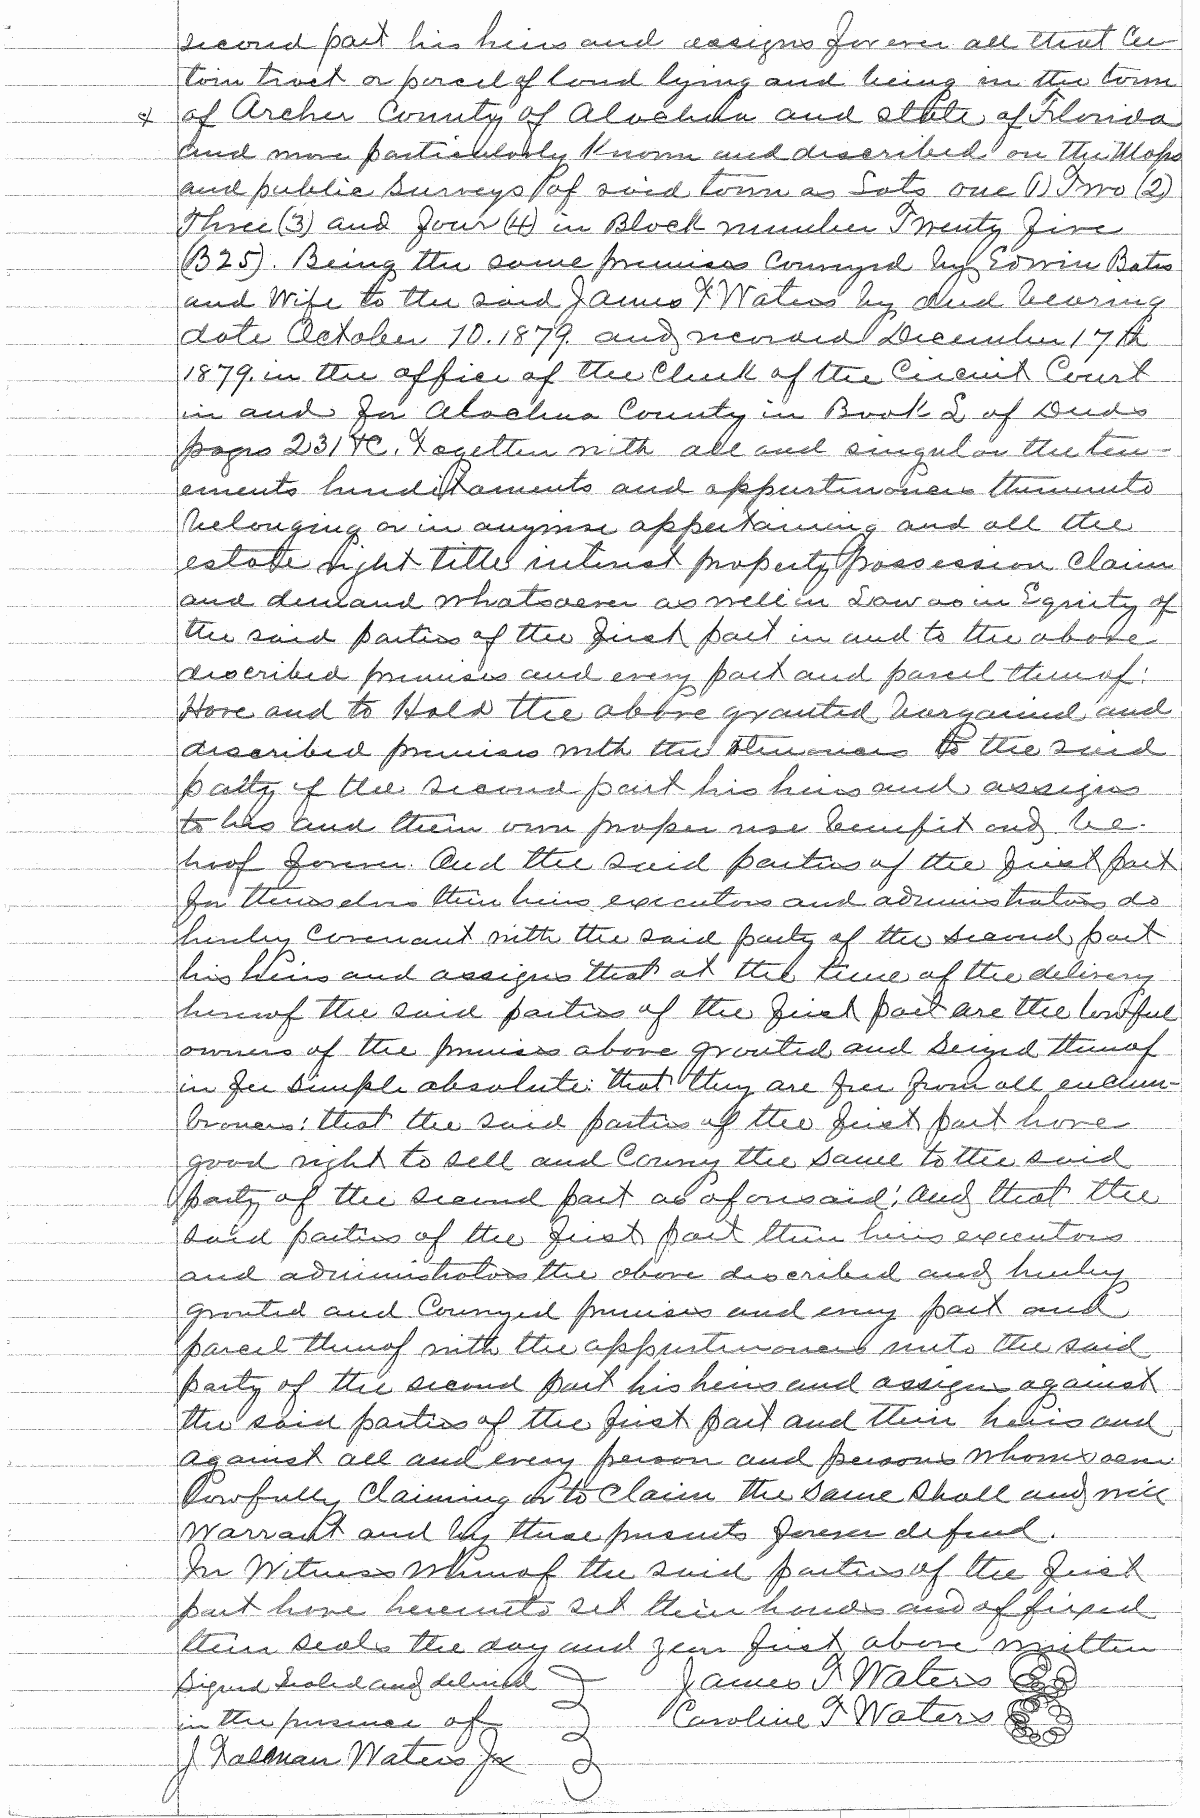 second part his heirs and assigns forever all that Cer
tain tract or parcel of land lying and being in the town
x of Archer County of Alachua and state of Florida
and more particularly Known and described on the Maps
and public Surveys of said town as Lots one (1) Two (2)
Three (3) and four (4) in Block number Twenty five
(B25). Being the same premises Conveyed by Edwin Bates
and Wife to the said James F Waters by deed bearing
date October 10. 1879. and recorded December 17th
1879. in the office of the Clerk of the Circuit Court
in and for Alachua County in Book L of Deeds
pages 231 &c. Together with all and singular the ten-
ements hereditaments and appurtenances thereunto
belonging or in anywise appertaining and all the
estate right title interest property possession Claim
and demand whatsoever as well in Law as in Equity of
the said parties of the first part in and to the above
described premises and every part and parcel thereof:
Have and to Hold the above granted bargained and
described premises with the to the said
party of the second part his heirs and assigns
to his and their own proper use benefit and be-
hoof forever. And the said parties of the first part
for themselves their heirs executors and administrators do
hereby Covenant with the said party of the second part
his heirs and assigns that at the time of the delivery
hereof the said parties of the first part are the lawful
owners of the premises above granted and Seized thereof
in fee simple absolute: that they are free from all encum-
brances: that the said parties of the first part have
good right to sell and Convey the same to the said
party of the second part as aforesaid: And that the
said parties of the first part their heirs executors
and administrators the above described and hereby
granted and Conveyed premises and every part and
parcel thereof with the appurtenances unto the said
party of the second part his heirs and assigns against
the said parties of the first part and their heirs and
against all and every person and persons whomsoever
lawfully Claiming or to Claim the same Shall and will
Warrant and by these presents forever defend.
In Witness Whereof the said parties of the first
part have hereunto set their hands and affixed
their seals the day and year first above written
Signed Sealed and delivered James F Waters
in the presence of Caroline F Waters
J Waters Jr